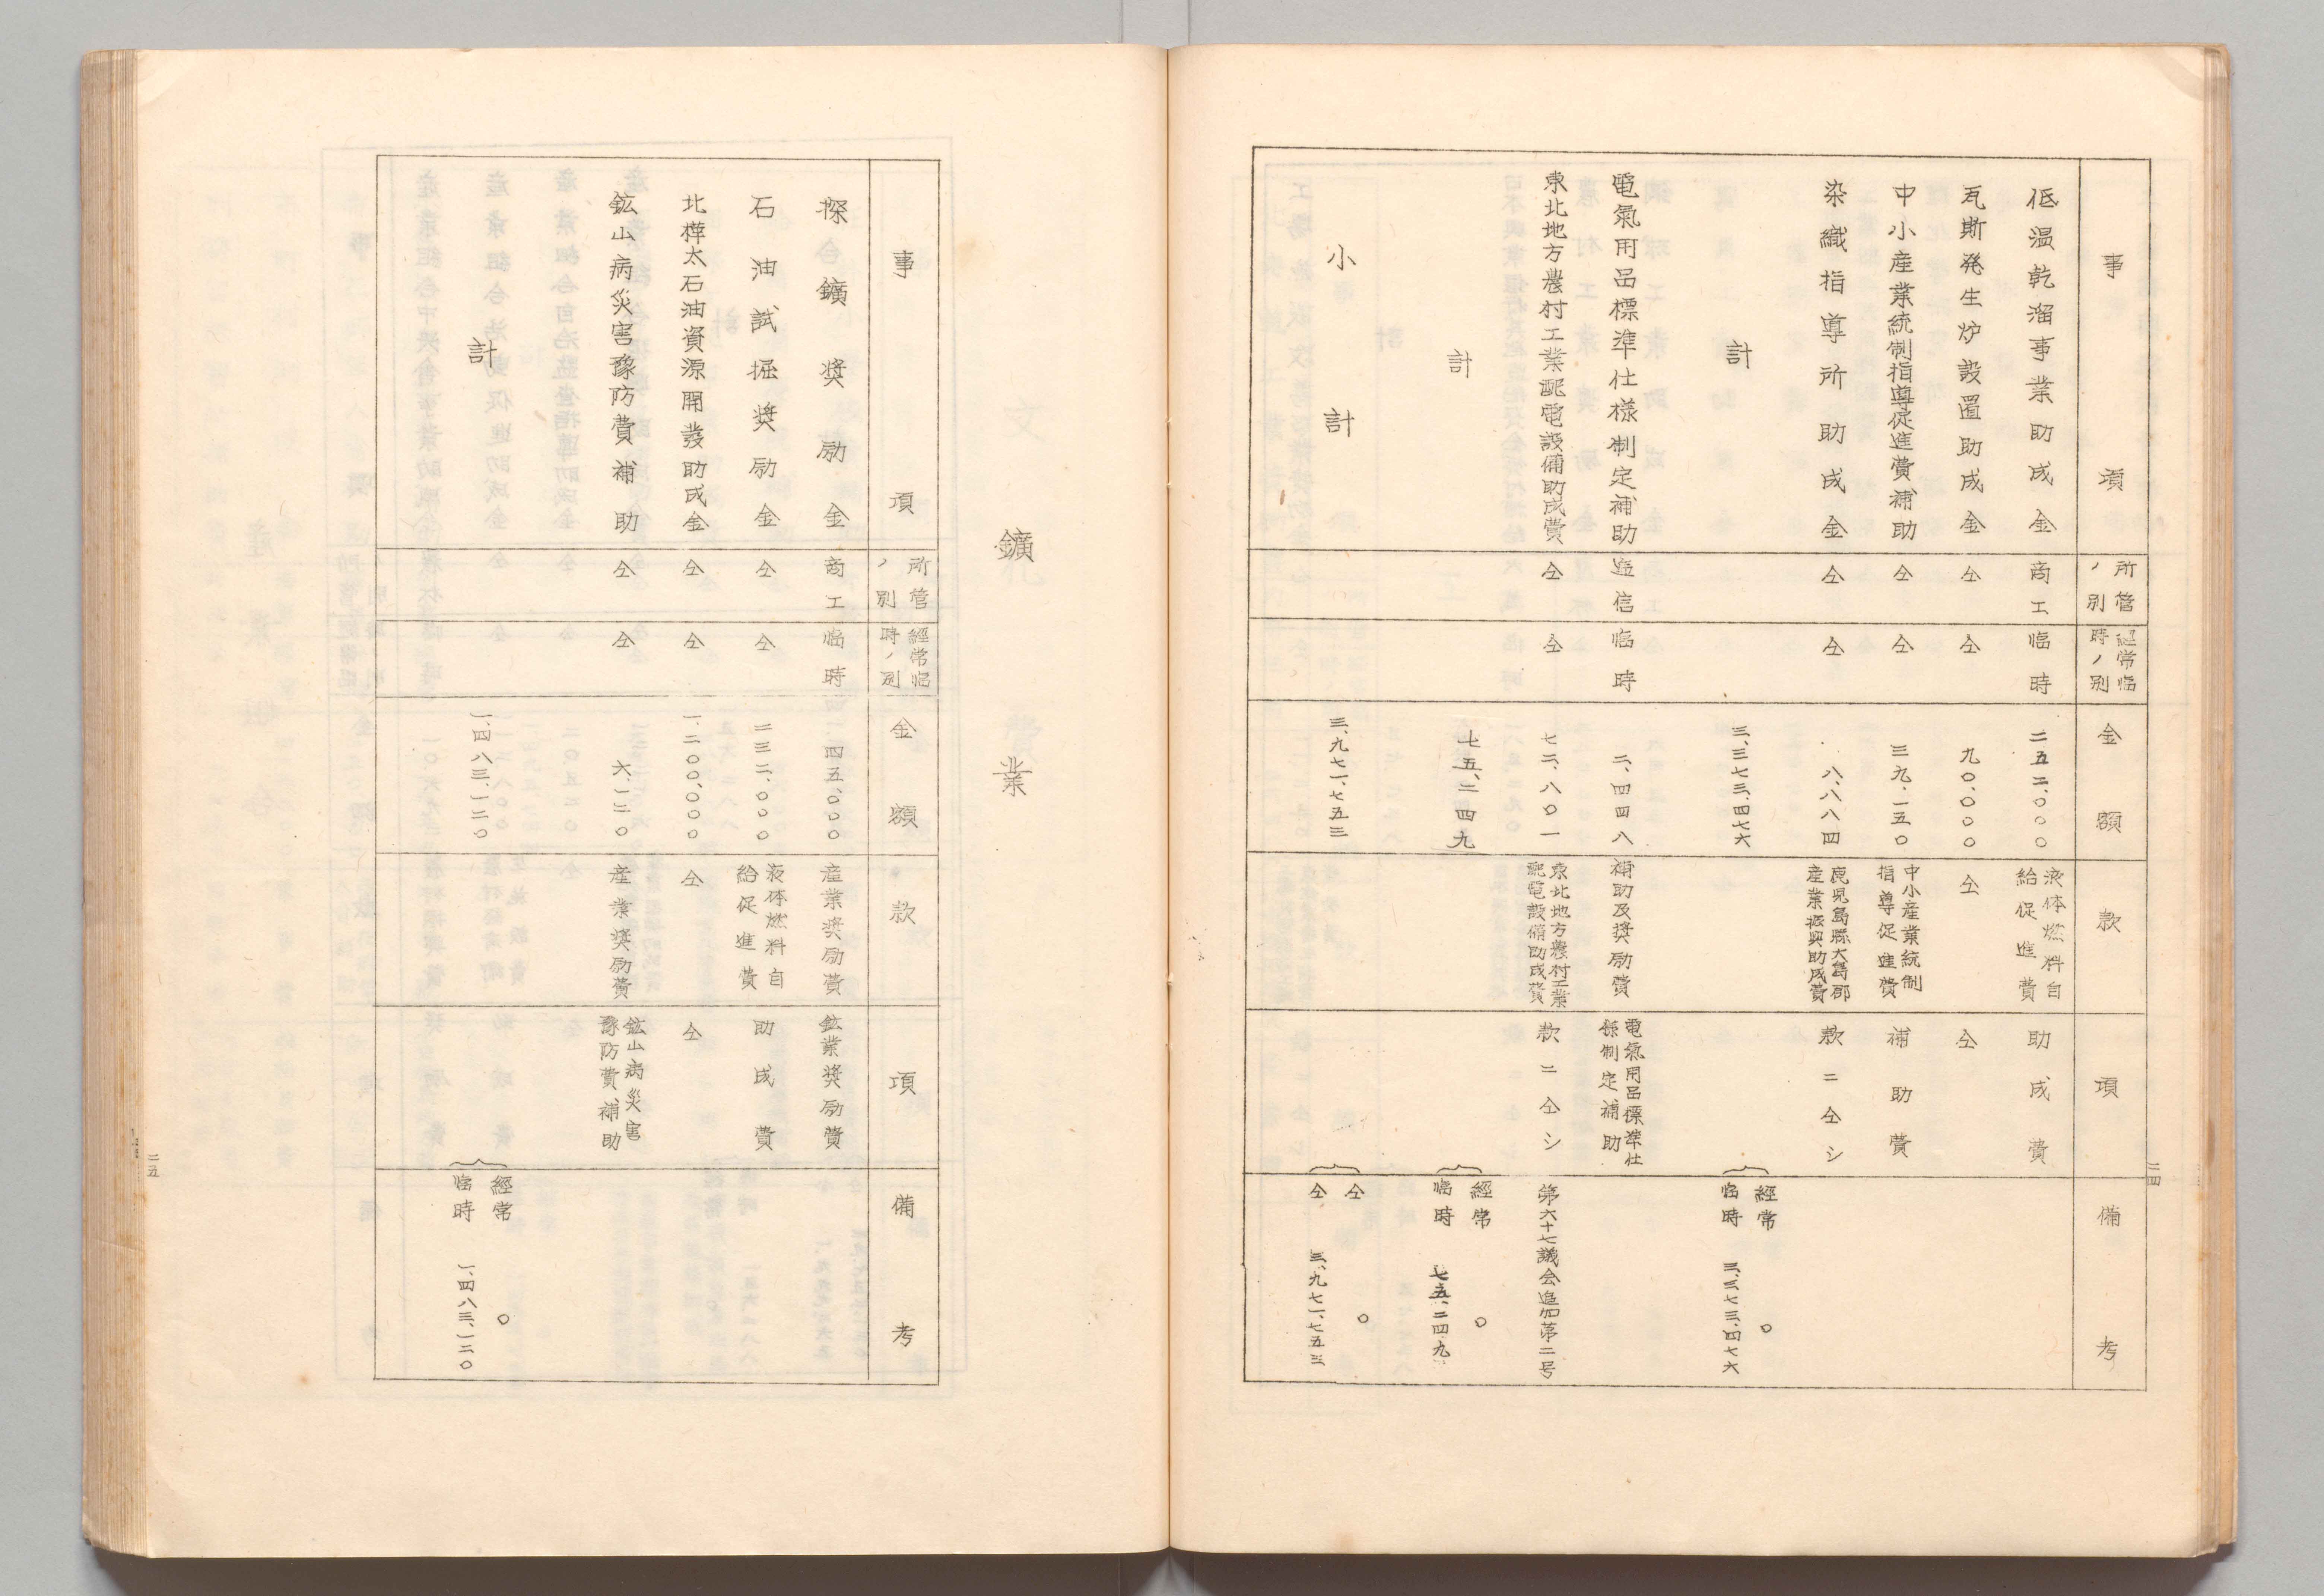 事項
所管ノ別
經常臨時ノ別
金額
款
項
備考
低温乾溜事業助成金 商工 臨時 二五二、〇〇〇 液体燃料自給促進費 助成費
瓦斯発生炉設置助成金 仝 仝 九〇、〇〇〇 仝 仝
中小産業統制指導促進費補助 仝 仝 三九、一五〇 中小産業統制指導促進費 補助費
染織指導所助成金 仝 仝 八、八八四 鹿児島縣大島郡産業振興助成費 款ニ仝シ
計 三、三七三、四七六 經常 〇 臨時 三、三七三、四七六
電氣用品標準仕様制定補助 逓信 臨時 二、四四八 補助及奨励費 電氣用品標準仕様制定補助
東北地方農村工業配電設備助成費 仝 仝 七二、八〇一 東北地方農村工業配電設備助成費 款ニ仝シ 第六十七議会追加第二号
計 七五、二四九 經常 〇 臨時 七五、二四九
小計 三、九七一、七五三 仝 〇 仝 三、九七一、七五三
二四
鑛業
事項
所管ノ別
經常臨時ノ別
金額
款
項
備考
探鑛奨励金 商工 臨時 四五、〇〇〇 産業奨励費 鉱業奨励費
石油試掘奨励金 仝 仝 二三二、〇〇〇 液体燃料自給促進費 助成費
北樺太石油資源開發助成金 仝 仝 一、二〇〇、〇〇〇 仝 仝
鉱山病災害豫防費補助 仝 仝 六、一二〇 産業奨励費 鉱山病災害豫防費補助
計 一、四八三、一二〇 經常 〇 臨時 一、四八三、一二〇
二五